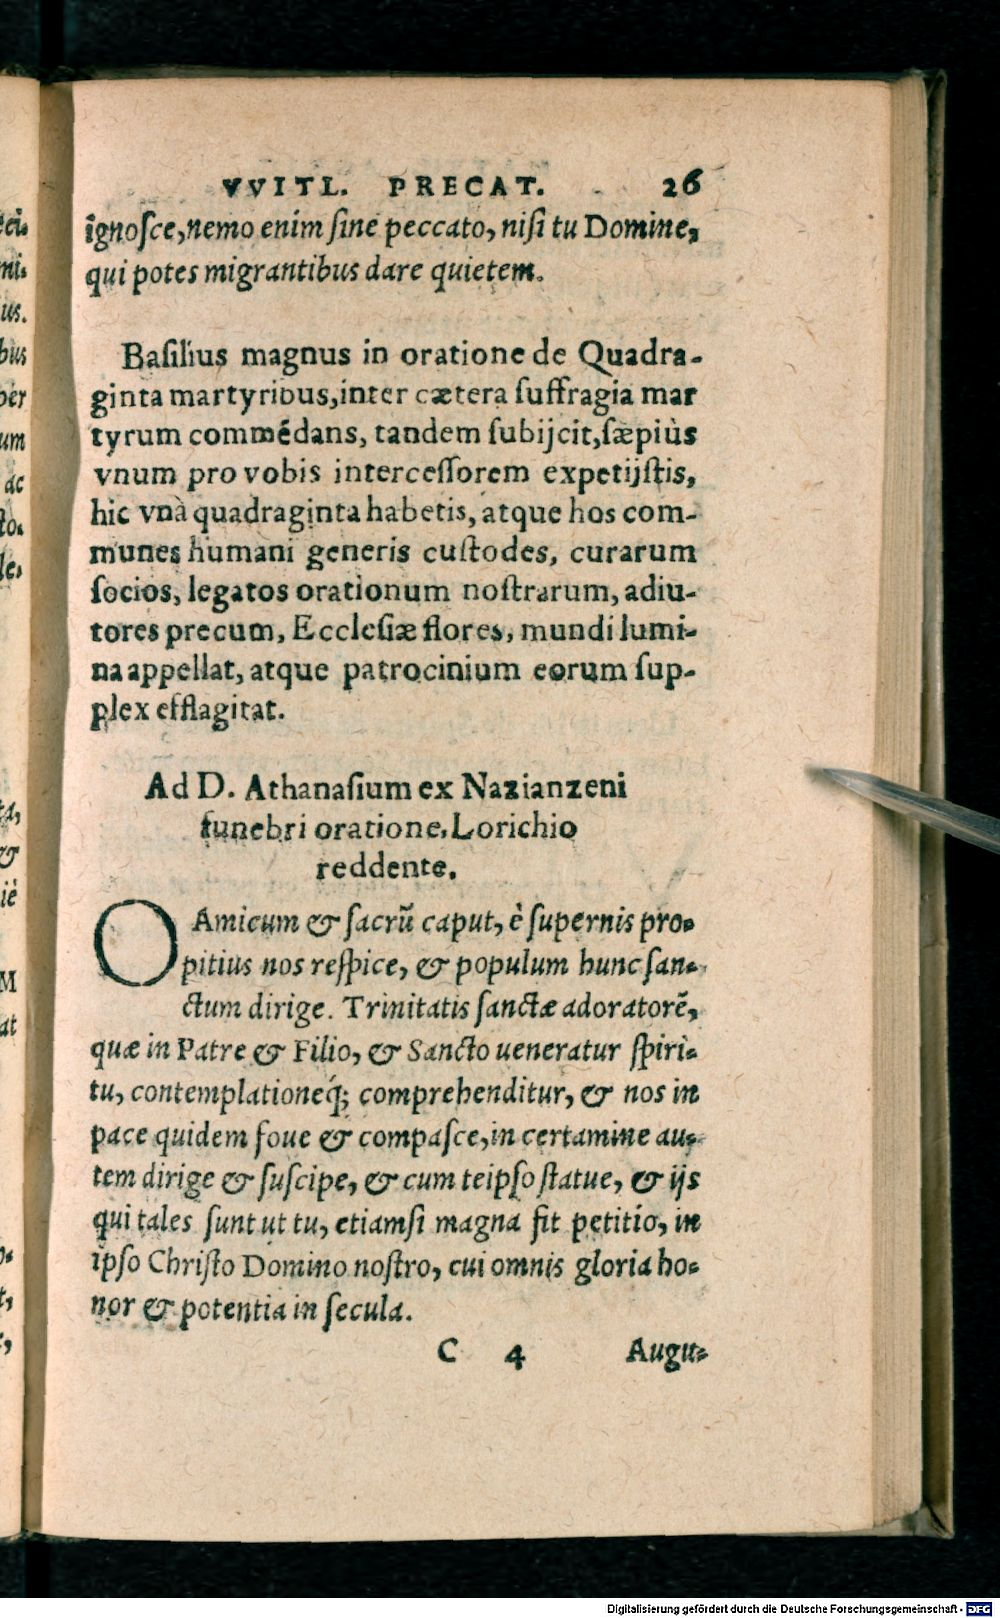 VVITL. PRECAT. 26
ignosce, nemo enim sine peccato, nisi tu Domine,
qui potes migrantibus dare quietem.
Basilius magnus in oratione de Quadra-
ginta martyribus, inter cætera suffragia mar
tyrum commēdans, tandem subijcit, sæpiùs
vnum pro vobis intercessorem expetijstis,
hic vnà quadraginta habetis, atque hos com-
munes humani generis custodes, curarum
socios, legatos orationum nostrarum, adiu-
tores precum, Ecclesiæ flores, mundi lumi-
na appellat, atque patrocinium eorum sup-
plex efflagitat.
Ad D. Athanasium ex Nazianzeni
funebri oratione, Lorichio
reddente.
O Amicum & sacrū caput, è supernis pro-
pitius nos respice, & populum hunc san-
ctum dirige. Trinitatis sanctæ adoratorē,
quæ in Patre & Filio, & Sancto ueneratur spiri-
tu, contemplationeq́; comprehenditur, & nos in
pace quidem foue & compasce, in certamine au-
tem dirige & suscipe, & cum teipso statue, & ijs
qui tales sunt ut tu, etiamsi magna fit petitio, in
ipso Christo Domino nostro, cui omnis gloria ho-
nor & potentia in secula.
C 4 Augu-
Digitalisierung gefördert durch die Deutsche Forschungsgemeinschaft - DFG